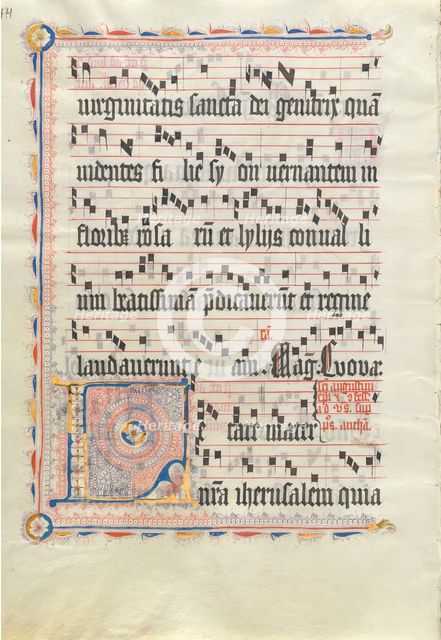 virginitatis sancta dei genitrix quā
videntes fi lie syon vernantem in
floribꝫ rosa rū et lylijs convalli
um beatissimam p̄dicaverūt et regine
laudaverunt eam. Mag. Evovae
Letare mater
nr̄a iherusalem quia
Heritage
Images